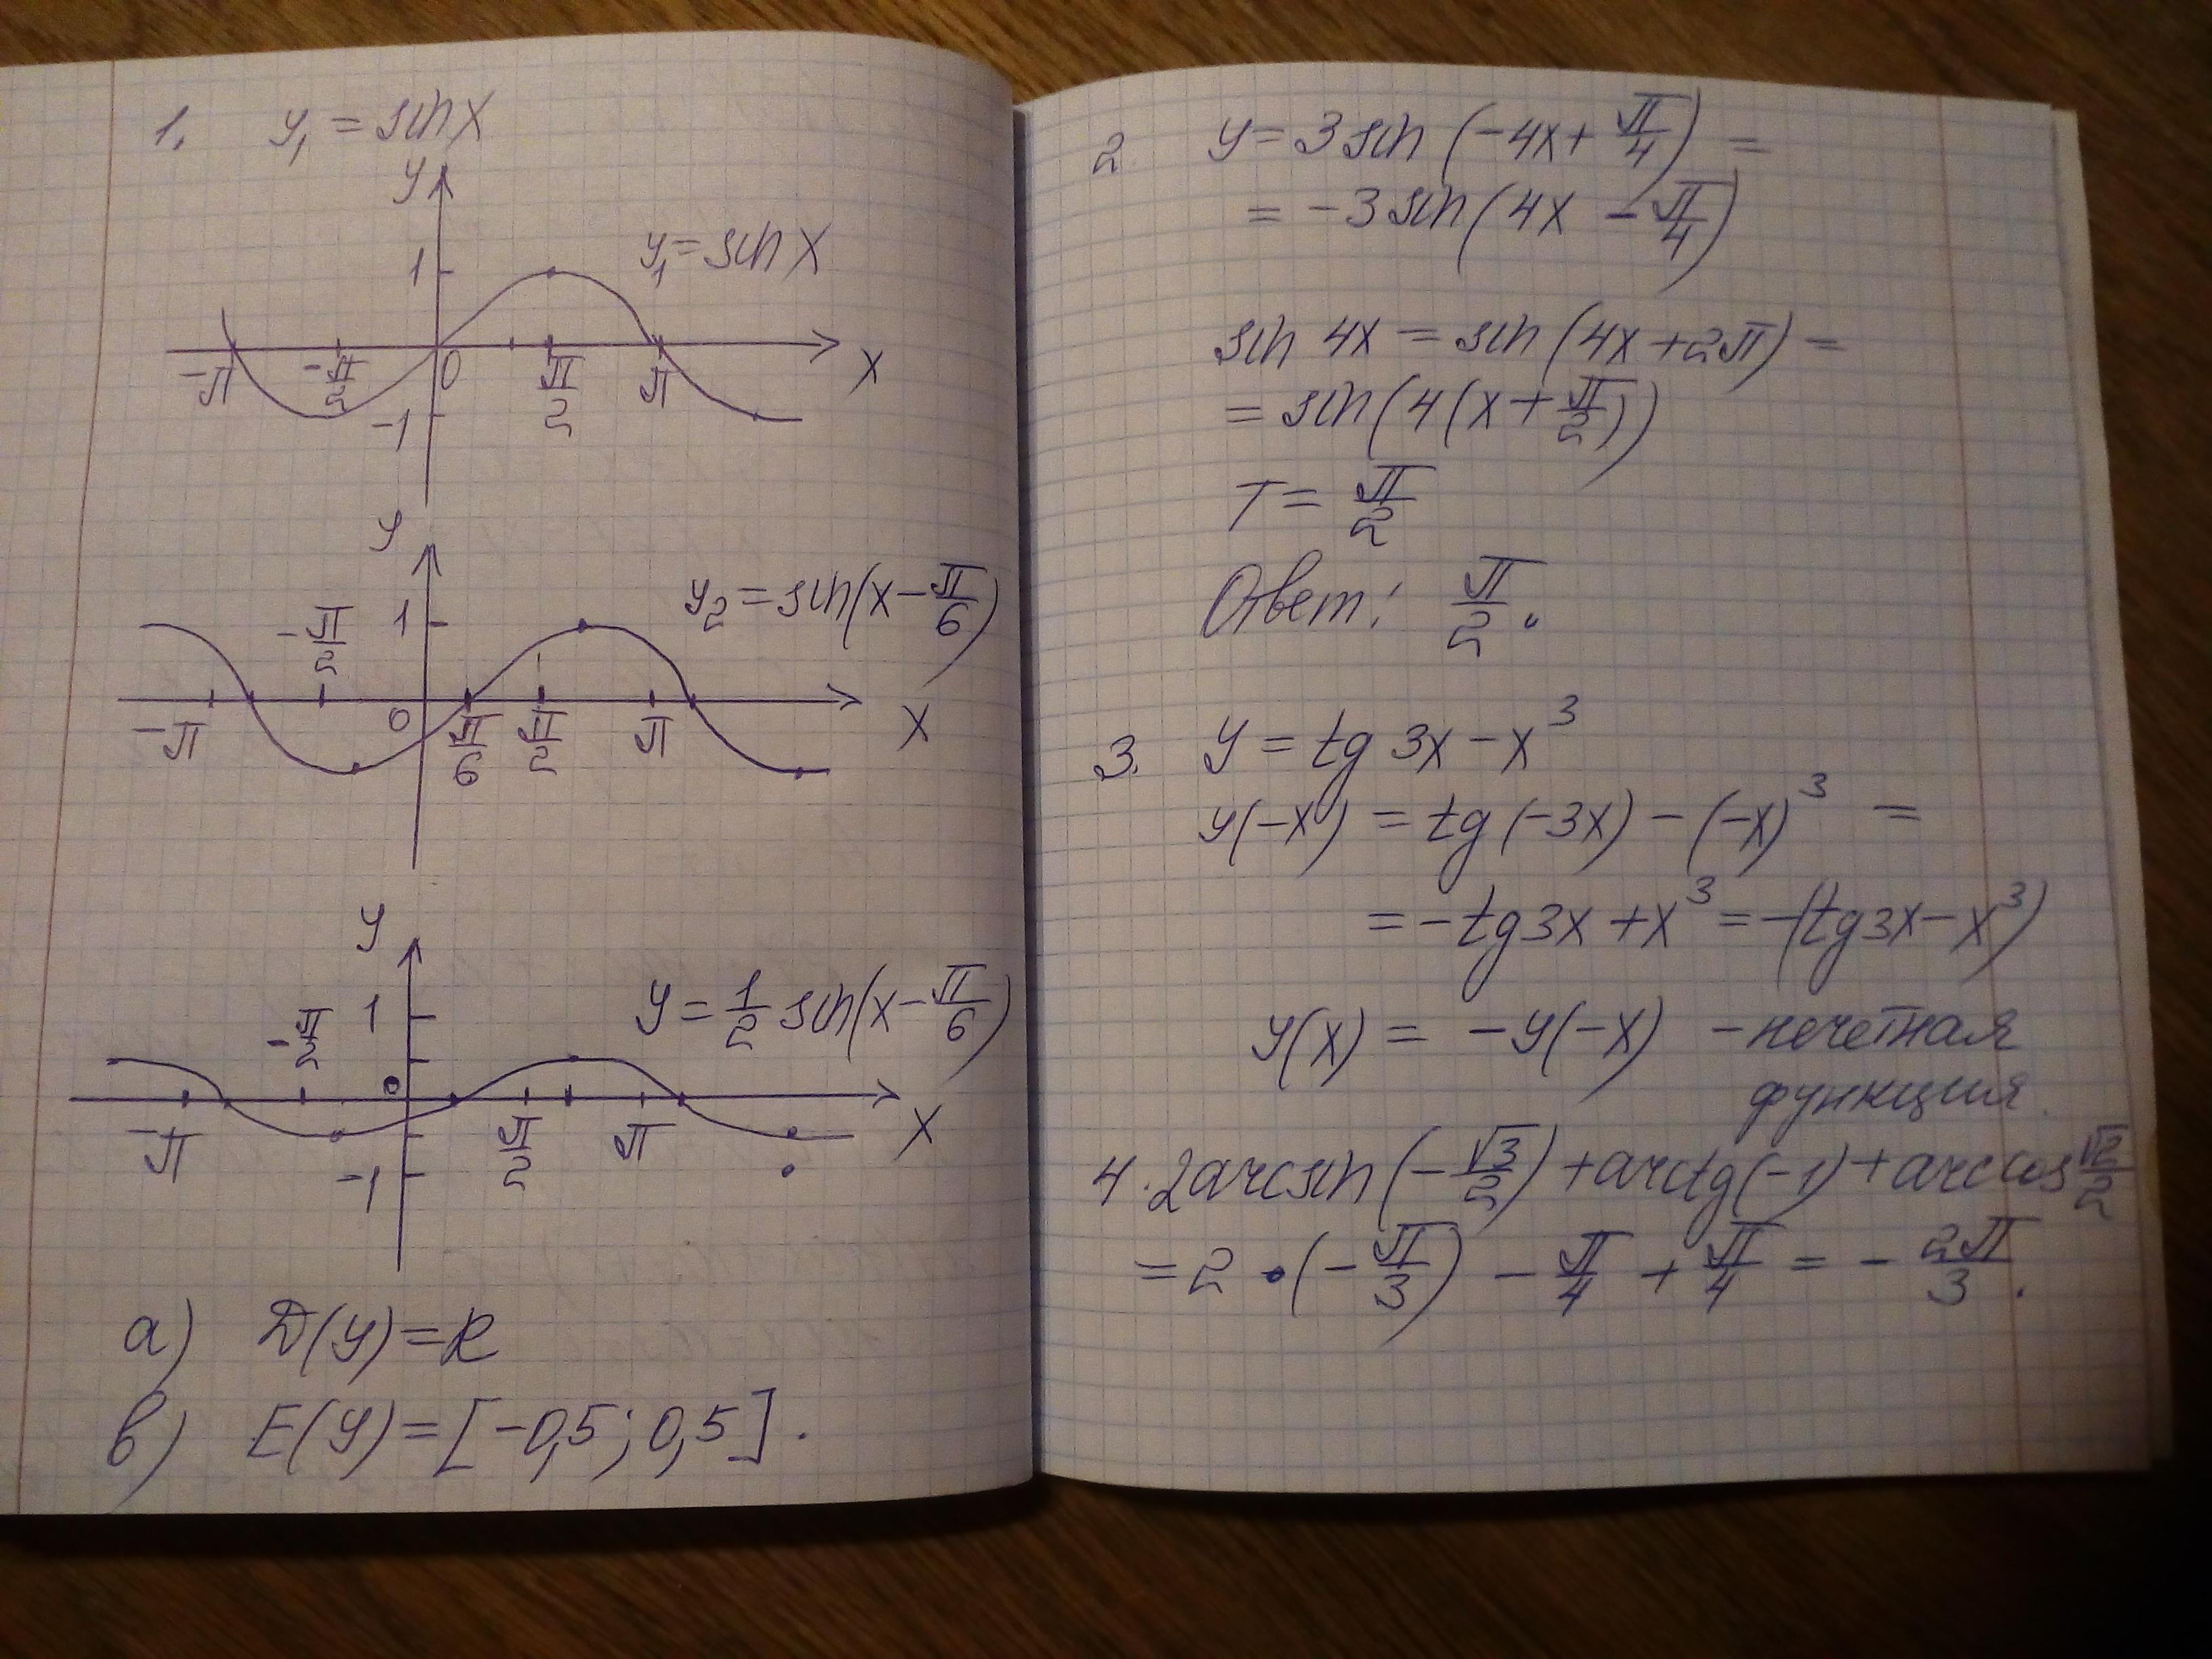 1. y₁ = sin x
y
1
y₁ = sin x
-π -π/2 0 π/2 π x
-1
y
y₂ = sin(x - π/6)
-π/2 1
-π 0 π/6 π/2 π x
y
y = 1/2 sin(x - π/6)
-π/2 1
0
-π π/2 π x
-1
а) D(y) = R
в) E(y) = [-0,5; 0,5].
2 y = 3 sin (-4x + π/4) =
= -3 sin (4x - π/4)
sin 4x = sin (4x + 2π) =
= sin (4(x + π/2))
T = π/2
Ответ: π/2.
3. y = tg 3x - x³
y(-x) = tg (-3x) - (-x)³ =
= -tg 3x + x³ = -(tg 3x - x³)
y(x) = -y(-x) - нечетная
функция.
4. 2 arcsin (-√3/2) + arctg (-1) + arccos √2/2
= 2 · (-π/3) - π/4 + π/4 = - 2π/3.